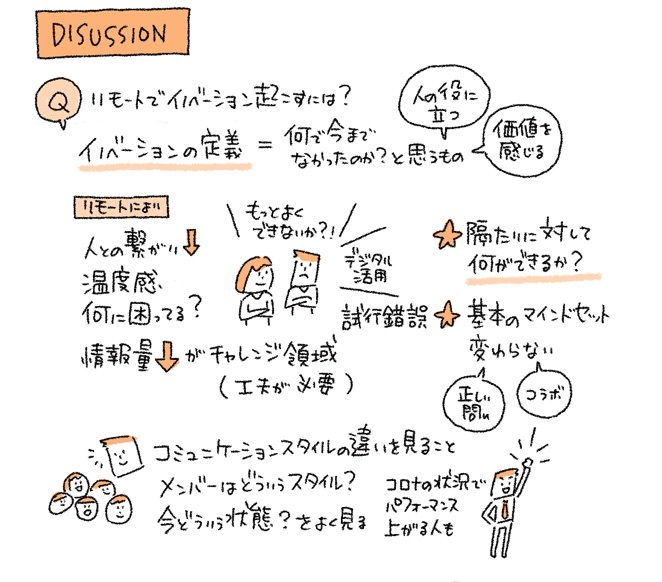 DISUSSION
Q リモートでイノベーション起こすには?
イノベーションの定義 = 何で今まで
なかったのか?と思うもの
人の役に
立つ
価値を
感じる
リモートにより
人との繋がり↓
温度感、
何に困ってる?
情報量↓がチャレンジ領域
(工夫が必要)
もっとよく
できないか?!
デジタル
活用
試行錯誤
★隔たりに対して
何ができるか?
★基本のマインドセット
変わらない
正しい
問い
コラボ
コミュニケーションスタイルの違いを見ること
メンバーはどういうスタイル?
今どういう状態?をよく見る
コロナの状況で
パフォーマンス
上がる人も